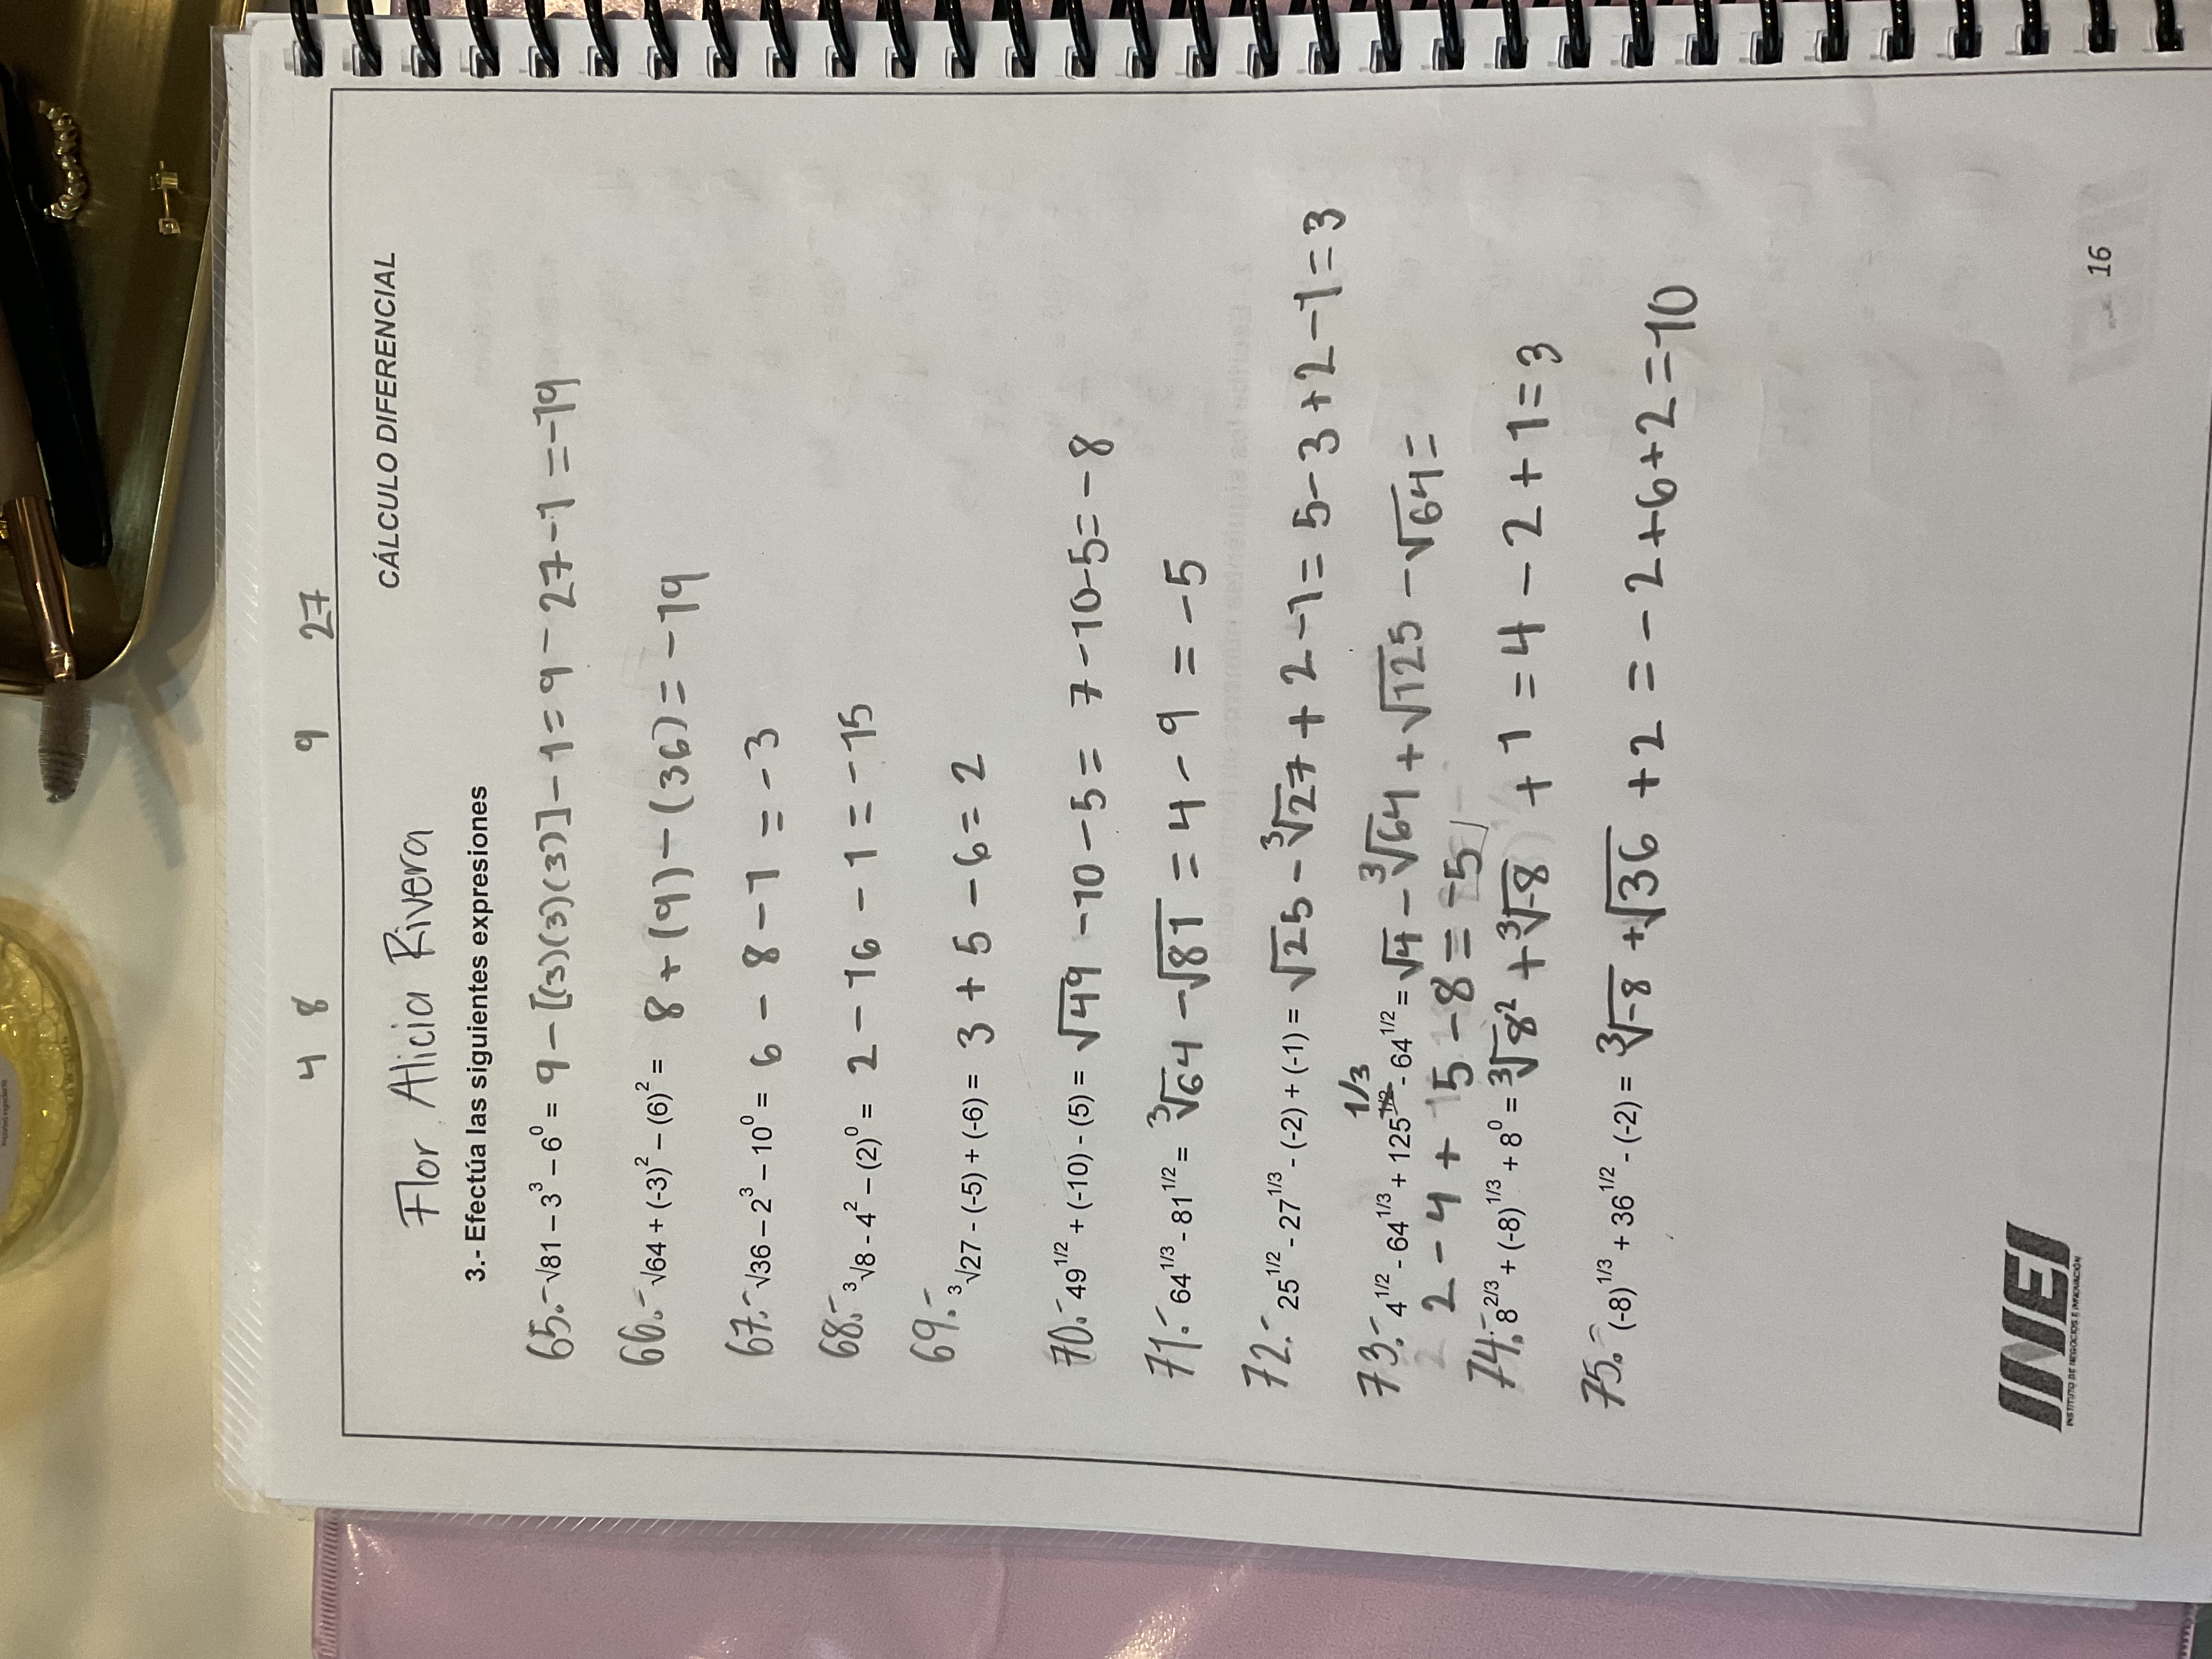 4 8 9 27
CÁLCULO DIFERENCIAL
Flor Alicia Rivera
3.- Efectúa las siguientes expresiones
65.- √81 – 3³ – 6⁰ = 9 - [(3)(3)(3)] - 1 = 9 - 27 - 1 = -19
66.- √64 + (-3)² – (6)² = 8 + (9) - (36) = -19
67.- √36 – 2³ – 10⁰ = 6 - 8 - 1 = -3
68.- ³√8 - 4² – (2)⁰ = 2 - 16 - 1 = -15
69.- ³√27 - (-5) + (-6) = 3 + 5 - 6 = 2
70.- 49^1/2 + (-10) - (5) = √49 - 10 - 5 = 7 - 10 - 5 = - 8
71.- 64^1/3 - 81^1/2 = ³√64 - √81 = 4 - 9 = - 5
72.- 25^1/2 - 27^1/3 - (-2) + (-1) = √25 - ³√27 + 2 - 1 = 5 - 3 + 2 - 1 = 3
1/3
73.- 4^1/2 - 64^1/3 + 125^1/2 - 64^1/2 = √4 - ³√64 + √125 - √64 =
2 - 4 + 5 - 8 = -5
74.- 8^2/3 + (-8)^1/3 + 8⁰ = ³√8² + ³√-8 + 1 = 4 - 2 + 1 = 3
75.- (-8)^1/3 + 36^1/2 - (-2) = ³√-8 + √36 + 2 = - 2 + 6 + 2 = 10
INEI
INSTITUTO DE NEGOCIOS E INNOVACIÓN
16